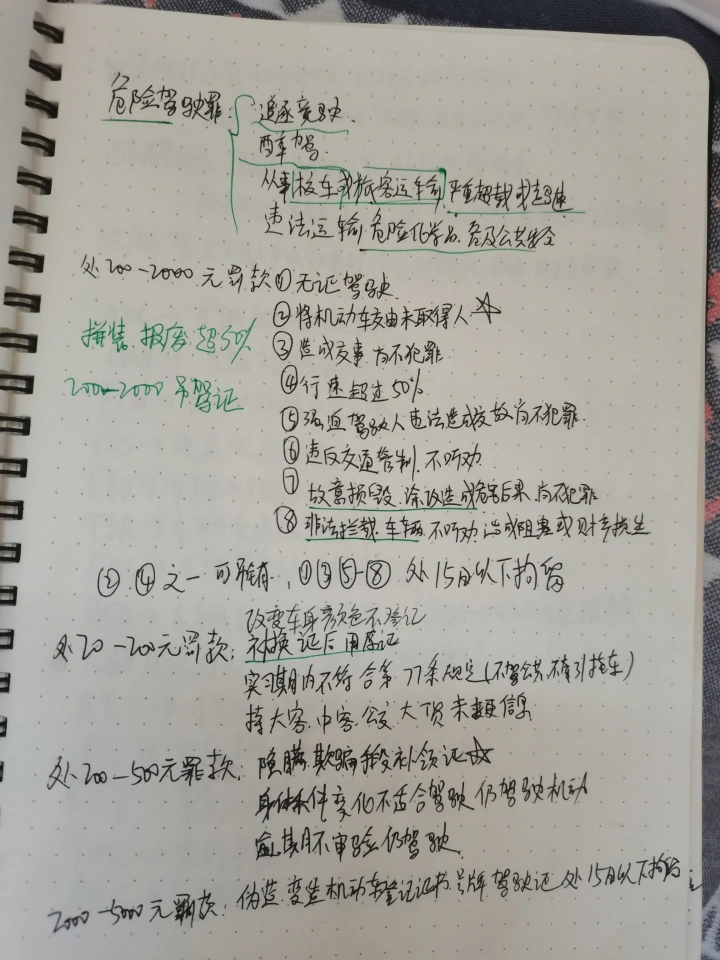 危险驾驶罪:
追逐竞驶
醉驾
从事校车或旅客运输,严重超载或超速
违法运输危险化学品,危及公共安全
处200-2000元罚款①无证驾驶
②将机动车交由未取得人☆
③造成交事 尚不犯罪
④行速超过50%
拼装.报废 超50%
200-2000 吊驾证
⑤强迫驾驶人违法造成交故尚不犯罪
⑥违反交通管制,不听劝
⑦故意损毁、涂改造成危害后果,尚不犯罪
⑧非法拦截.车辆 不听劝 造成阻塞或财产损失
②.④之一 可吊销,①③⑤-⑧ 处15日以下拘留
改变车身颜色不登记
处20-200元罚款:补换证后用原证
实习期内不符合第77条规定(不驾公共,不牵引拖车)
持大客.中客.公交 大货 未变更信息
处200-500元罚款:隐瞒.欺骗手段补领证☆
身体条件变化不适合驾驶 仍驾驶机动
逾期不审验仍驾驶
2000-5000元罚款:伪造.变造机动车登记证书.号牌.驾驶证 处15日以下拘留